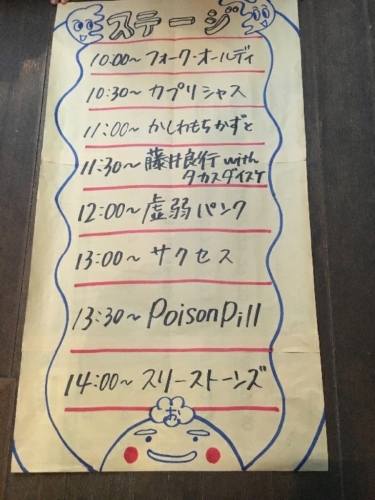 ステージ
10:00〜フォーク・オールディ
10:30〜カプリシャス
11:00〜かしわもちかずと
11:30〜藤井良行with
タカスダイスケ
12:00〜虚弱パンク
13:00〜サクセス
13:30〜PoisonPill
14:00〜スリーストーンズ
お